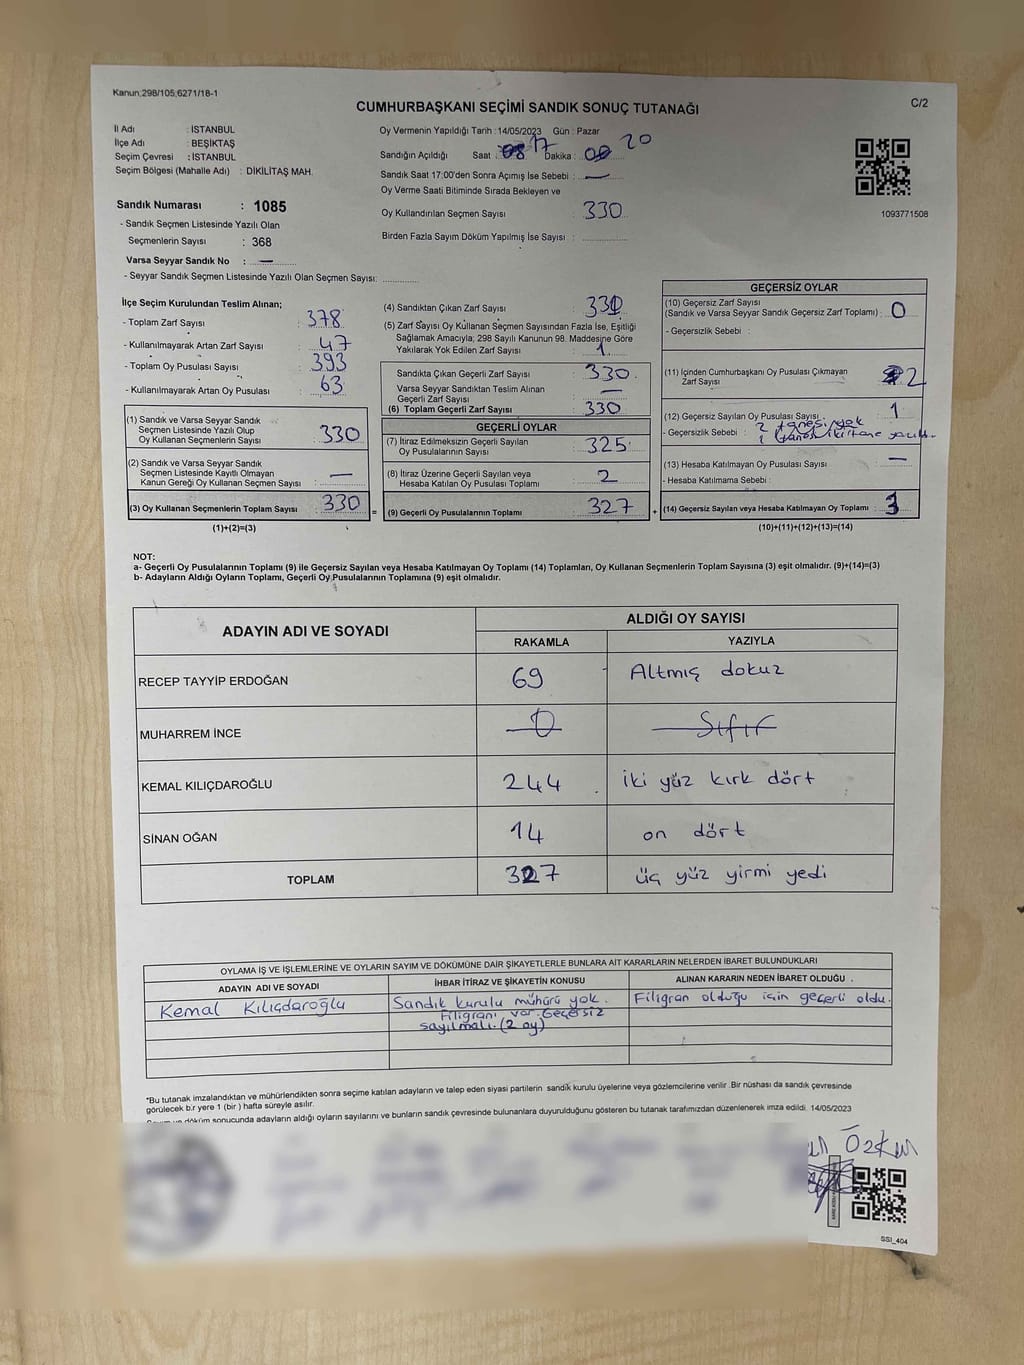 Kanun;298/105;6271/18-1
CUMHURBAŞKANI SEÇİMİ SANDIK SONUÇ TUTANAĞI
C/2
İl Adı : İSTANBUL
İlçe Adı : BEŞİKTAŞ
Seçim Çevresi : İSTANBUL
Seçim Bölgesi (Mahalle Adı) : DİKİLİTAŞ MAH.
Sandık Numarası : 1085
- Sandık Seçmen Listesinde Yazılı Olan
Seçmenlerin Sayısı : 368
Varsa Seyyar Sandık No : —
- Seyyar Sandık Seçmen Listesinde Yazılı Olan Seçmen Sayısı:
Oy Vermenin Yapıldığı Tarih : 14/05/2023 Gün : Pazar
Sandığın Açıldığı Saat : 17 Dakika : 20
Sandık Saat 17:00'den Sonra Açımış İse Sebebi : —
Oy Verme Saati Bitiminde Sırada Bekleyen ve
Oy Kullandırılan Seçmen Sayısı : 330
Birden Fazla Sayım Döküm Yapılmış İse Sayısı :
1093771508
İlçe Seçim Kurulundan Teslim Alınan;
- Toplam Zarf Sayısı : 378
- Kullanılmayarak Artan Zarf Sayısı : 47
- Toplam Oy Pusulası Sayısı : 393
- Kullanılmayarak Artan Oy Pusulası : 63
(1) Sandık ve Varsa Seyyar Sandık
Seçmen Listesinde Yazılı Olup
Oy Kullanan Seçmenlerin Sayısı : 330
(2) Sandık ve Varsa Seyyar Sandık
Seçmen Listesinde Kayıtlı Olmayan
Kanun Gereği Oy Kullanan Seçmen Sayısı : —
(3) Oy Kullanan Seçmenlerin Toplam Sayısı : 330 =
(1)+(2)=(3)
(4) Sandıktan Çıkan Zarf Sayısı : 331
(5) Zarf Sayısı Oy Kullanan Seçmen Sayısından Fazla İse, Eşitliği
Sağlamak Amacıyla; 298 Sayılı Kanunun 98. Maddesine Göre
Yakılarak Yok Edilen Zarf Sayısı : 1
Sandıkta Çıkan Geçerli Zarf Sayısı : 330
Varsa Seyyar Sandıktan Teslim Alınan
Geçerli Zarf Sayısı : —
(6) Toplam Geçerli Zarf Sayısı : 330
GEÇERLİ OYLAR
(7) İtiraz Edilmeksizin Geçerli Sayılan
Oy Pusulalarının Sayısı : 325
(8) İtiraz Üzerine Geçerli Sayılan veya
Hesaba Katılan Oy Pusulası Toplamı : 2
(9) Geçerli Oy Pusulalarının Toplamı : 327 +
GEÇERSİZ OYLAR
(10) Geçersiz Zarf Sayısı
(Sandık ve Varsa Seyyar Sandık Geçersiz Zarf Toplamı) : 0
- Geçersizlik Sebebi :
(11) İçinden Cumhurbaşkanı Oy Pusulası Çıkmayan
Zarf Sayısı : 2
(12) Geçersiz Sayılan Oy Pusulası Sayısı : 1
- Geçersizlik Sebebi : 2 tanesi yok
1 tanesi iki tane
(13) Hesaba Katılmayan Oy Pusulası Sayısı : —
- Hesaba Katılmama Sebebi :
(14) Geçersiz Sayılan veya Hesaba Katılmayan Oy Toplamı : 3
(10)+(11)+(12)+(13)=(14)
NOT:
a- Geçerli Oy Pusulalarının Toplamı (9) ile Geçersiz Sayılan veya Hesaba Katılmayan Oy Toplamı (14) Toplamları, Oy Kullanan Seçmenlerin Toplam Sayısına (3) eşit olmalıdır. (9)+(14)=(3)
b- Adayların Aldığı Oyların Toplamı, Geçerli Oy Pusulalarının Toplamına (9) eşit olmalıdır.
ADAYIN ADI VE SOYADI
ALDIĞI OY SAYISI
RAKAMLA YAZIYLA
RECEP TAYYİP ERDOĞAN 69 Altmış dokuz
MUHARREM İNCE 0 Sıfır
KEMAL KILIÇDAROĞLU 244 iki yüz kırk dört
SİNAN OĞAN 14 on dört
TOPLAM 327 üç yüz yirmi yedi
OYLAMA İŞ VE İŞLEMLERİNE VE OYLARIN SAYIM VE DÖKÜMÜNE DAİR ŞİKAYETLERLE BUNLARA AİT KARARLARIN NELERDEN İBARET BULUNDUKLARI
ADAYIN ADI VE SOYADI İHBAR İTİRAZ VE ŞİKAYETİN KONUSU ALINAN KARARIN NEDEN İBARET OLDUĞU
Kemal Kılıçdaroğlu Sandık kurulu mühürü yok. Filigran olduğu için geçerli oldu.
Filigranı var. Geçersiz
sayılmalı. (2 oy)
*Bu tutanak imzalandıktan ve mühürlendikten sonra seçime katılan adayların ve talep eden siyasi partilerin sandık kurulu üyelerine veya gözlemcilerine verilir. Bir nüshası da sandık çevresinde
görülecek bir yere 1 (bir) hafta süreyle asılır.
döküm sonucunda adayların aldığı oyların sayılarını ve bunların sandık çevresinde bulunanlara duyurulduğunu gösteren bu tutanak tarafımızdan düzenlenerek imza edildi. 14/05/2023
SSI_404